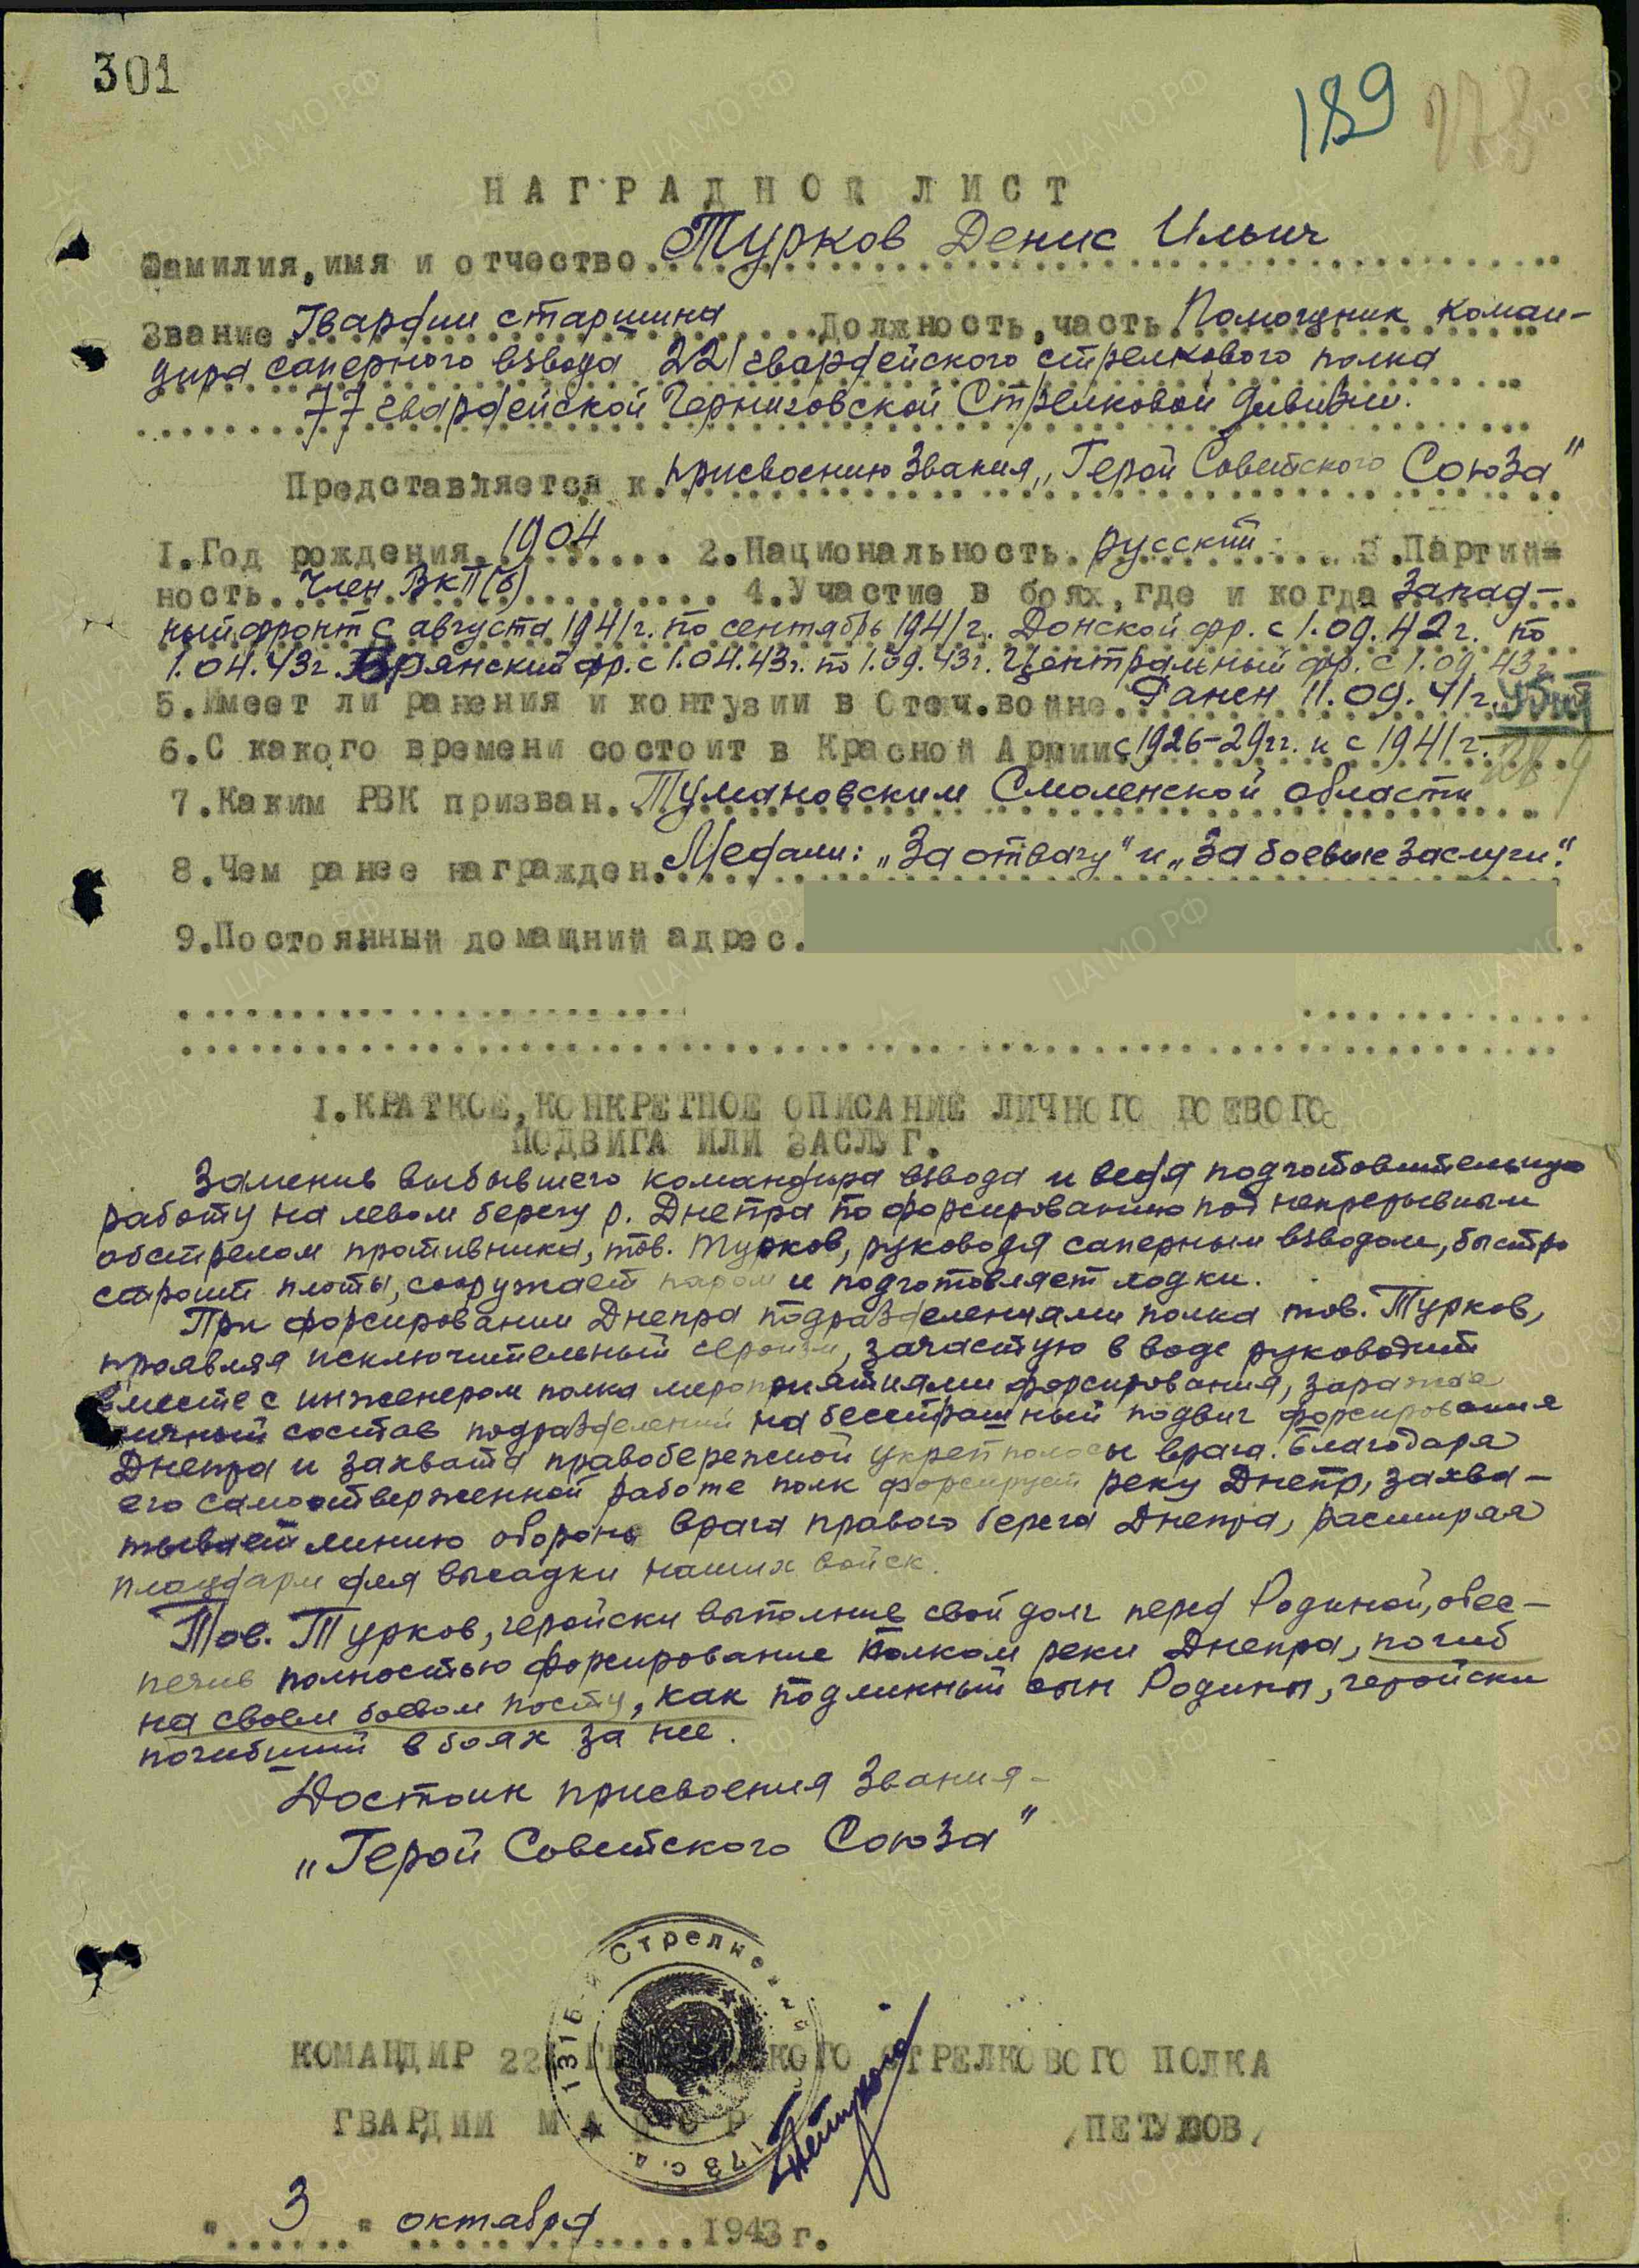 301
189
178
НАГРАДНОЙ ЛИСТ
Фамилия, имя и отчество. Турков Денис Ильич
Звание Гвардии старшина Должность, часть. Помощник коман-
дира саперного взвода 221 гвардейского стрелкового полка
77 гвардейской Черниговской Стрелковой дивизии.
Представляется к. присвоению Звания „Герой Советского Союза"
1. Год рождения. 1904 2. Национальность. русский 3. Партий-
ность. Член ВКП(б) 4. Участие в боях, где и когда Запад-
ный фронт с августа 1941г. по сентябрь 1941г. Донской фр. с 1.09.42г. по
1.04.43г. Брянский фр. с 1.04.43г. по 1.09.43г. Центральный фр. с 1.09.43г.
5. Имеет ли ранения и контузии в Отеч. войне. Ранен 11.09.41г. убит
6. С какого времени состоит в Красной Армии с 1926-29гг. и с 1941г.
7. Каким РВК призван. Тумановским Смоленской области
8. Чем ранее награжден. Медали: „За отвагу" и „За боевые заслуги".
9. Постоянный домашний адрес.
I. КРАТКОЕ, КОНКРЕТНОЕ ОПИСАНИЕ ЛИЧНОГО БОЕВОГО
ПОДВИГА ИЛИ ЗАСЛУГ.
Заменив выбывшего командира взвода и ведя подготовительную
работу на левом берегу р. Днепра по форсированию под непрерывным
обстрелом противника, тов. Турков, руководя саперным взводом, быстро
строит плоты, сооружает паром и подготовляет лодки.
При форсировании Днепра подразделениями полка тов. Турков,
проявляя исключительный героизм, зачастую в воде руководит
вместе с инженером полка мероприятиями форсирования, заражая
личный состав подразделений на бесстрашный подвиг форсирования
Днепра и захвата правобережной укрепполосы врага. Благодаря
его самоотверженной работе полк форсирует реку Днепр, захва-
тывает линию обороны врага правого берега Днепра, расширяя
плацдарм для высадки наших войск.
Тов. Турков, геройски выполнив свой долг перед Родиной, обес-
печив полностью форсирование полком реки Днепра, погиб
на своем боевом посту, как подлинный сын Родины, геройски
погибший в боях за нее.
Достоин присвоения Звания -
„Герой Советского Союза"
КОМАНДИР 221 ГВ СКОГО СТРЕЛКОВОГО ПОЛКА
ГВАРДИИ МАЙОР /ПЕТУХОВ/
1315-й Стрелковый
173 с.д.
"3" октября 1943г.
ЦА МО РФ
ПАМЯТЬ НАРОДА